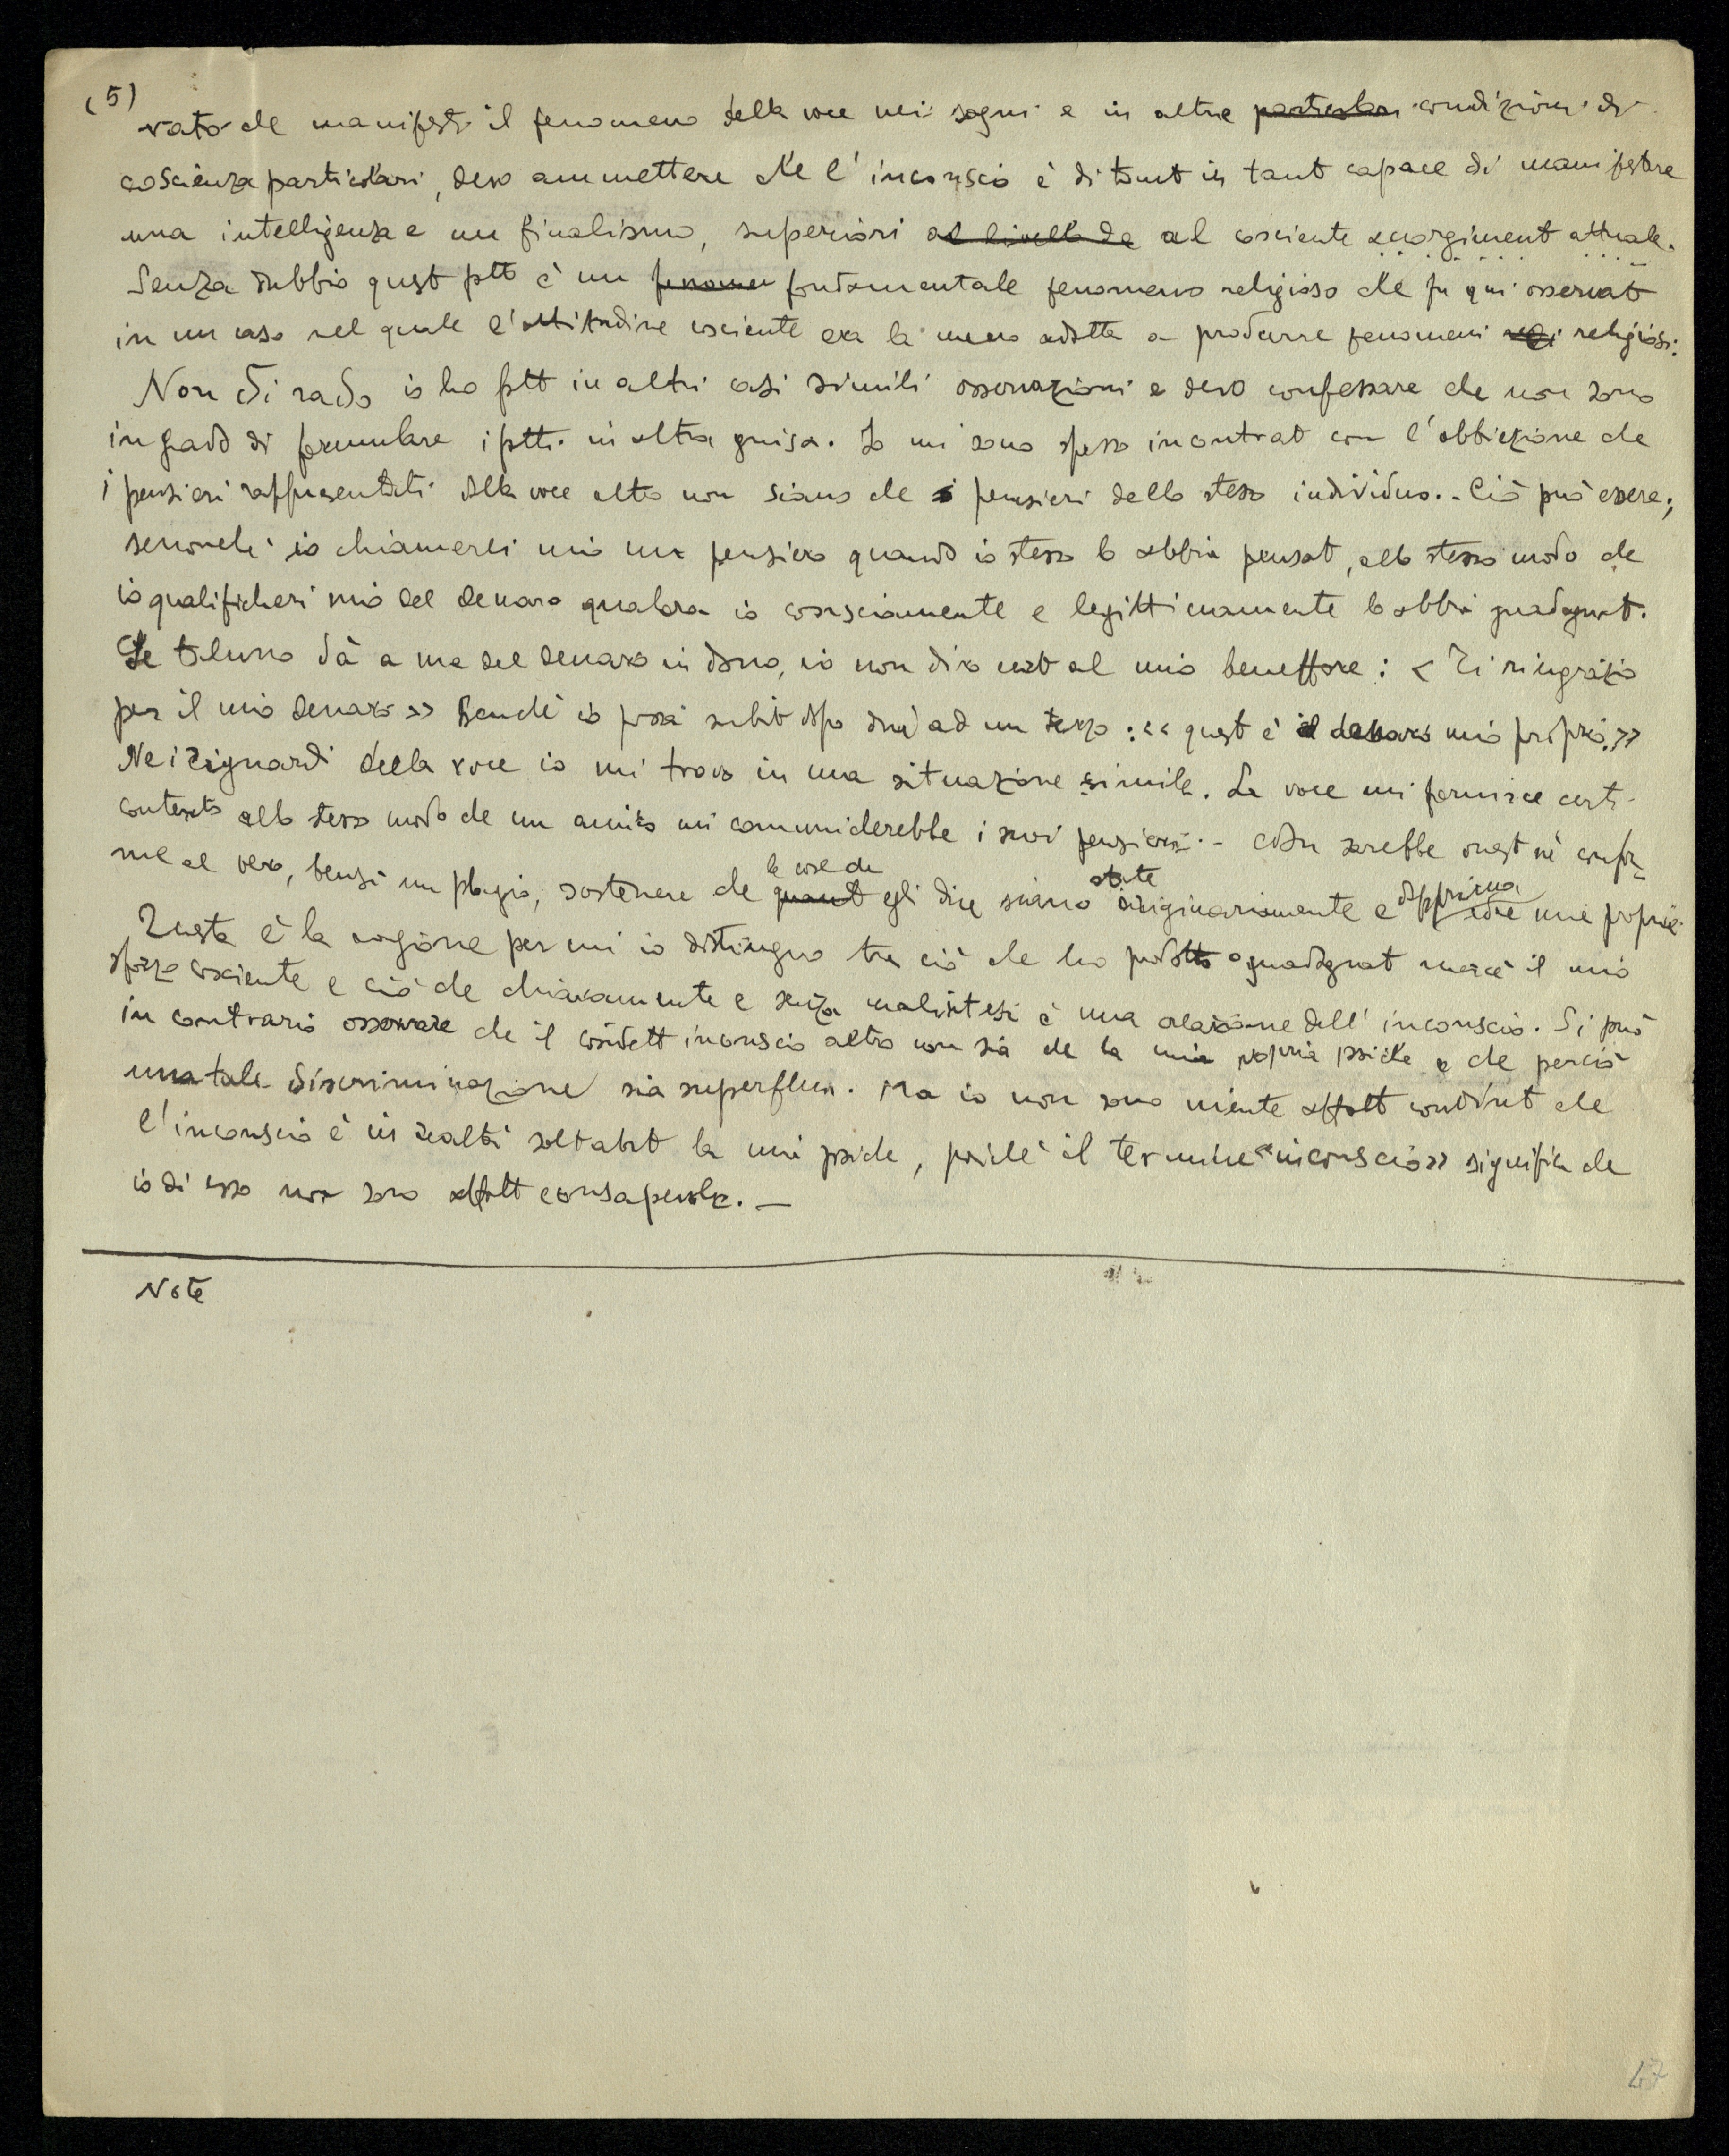 (5)
vato che manifesti il fenomeno della voce nei sogni e in altre particolari condizioni di
coscienza particolari, devo ammettere che l'inconscio è di tant in tant capace di manifestare
una intelligenza e un finalismo, superiori al livello de al cosciente scorgiment attuale.
Senza dubbio quest ftt è un fenomen fondamentale fenomeno religioso che fu qui osservat
in un caso nel quale l'attitudine cosciente era la meno adatta a produrre fenomeni reli religiosi.
Non di rado io ho ftt in altri casi simili osservazioni e devo confessare che non sono
in grado di formulare i ftti in altra guisa. Io mi sono spesso incontrat con l'obbiezione che
i pensieri rappresentati dalla voce altro non siano che i pensieri dello stesso individuo. - Ciò può essere;
senonchè io chiamerei mio un pensiero quando io stesso lo abbia pensat, allo stesso modo che
io qualificherei mio del denaro qualora io consciamente e legittimamente lo abbia guadagnat.
Se taluno dà a me del denaro in dono, io non dirò cert al mio beneffore: < Ti ringrazio
per il mio denaro >> Benchè io possa subit dopo dire ad un terzo: << quest è il denaro mio proprio. >>
Nei riguardi della voce io mi trovo in una situazione simile. La voce mi fornisce certi
contenuti allo stesso modo che un amico mi comunicherebbe i suoi pensieri. - sarebbe onest nè confor
me al vero, bensì un plagio, sostenere che quant le cose che egli dice siano state originariamente e dapprima idee mie proprie.
Questa è la ragione per cui io distinguo tra ciò che ho prodotto o guadagnat mercè il mio
sforzo cosciente e ciò che chiaramente e senza malintesi è una creazione dell'inconscio. Si può
in contrario osservare che il cosidett inconscio altro non sia che la mia propria psiche e che perciò
una tale discriminazione sia superflua. Ma io non sono niente affatt convint che
l'inconscio è in realtà soltant la mia psiche, poichè il termine "inconscio» significa che
io di esso non sono affatt consapevole. —
Note
47